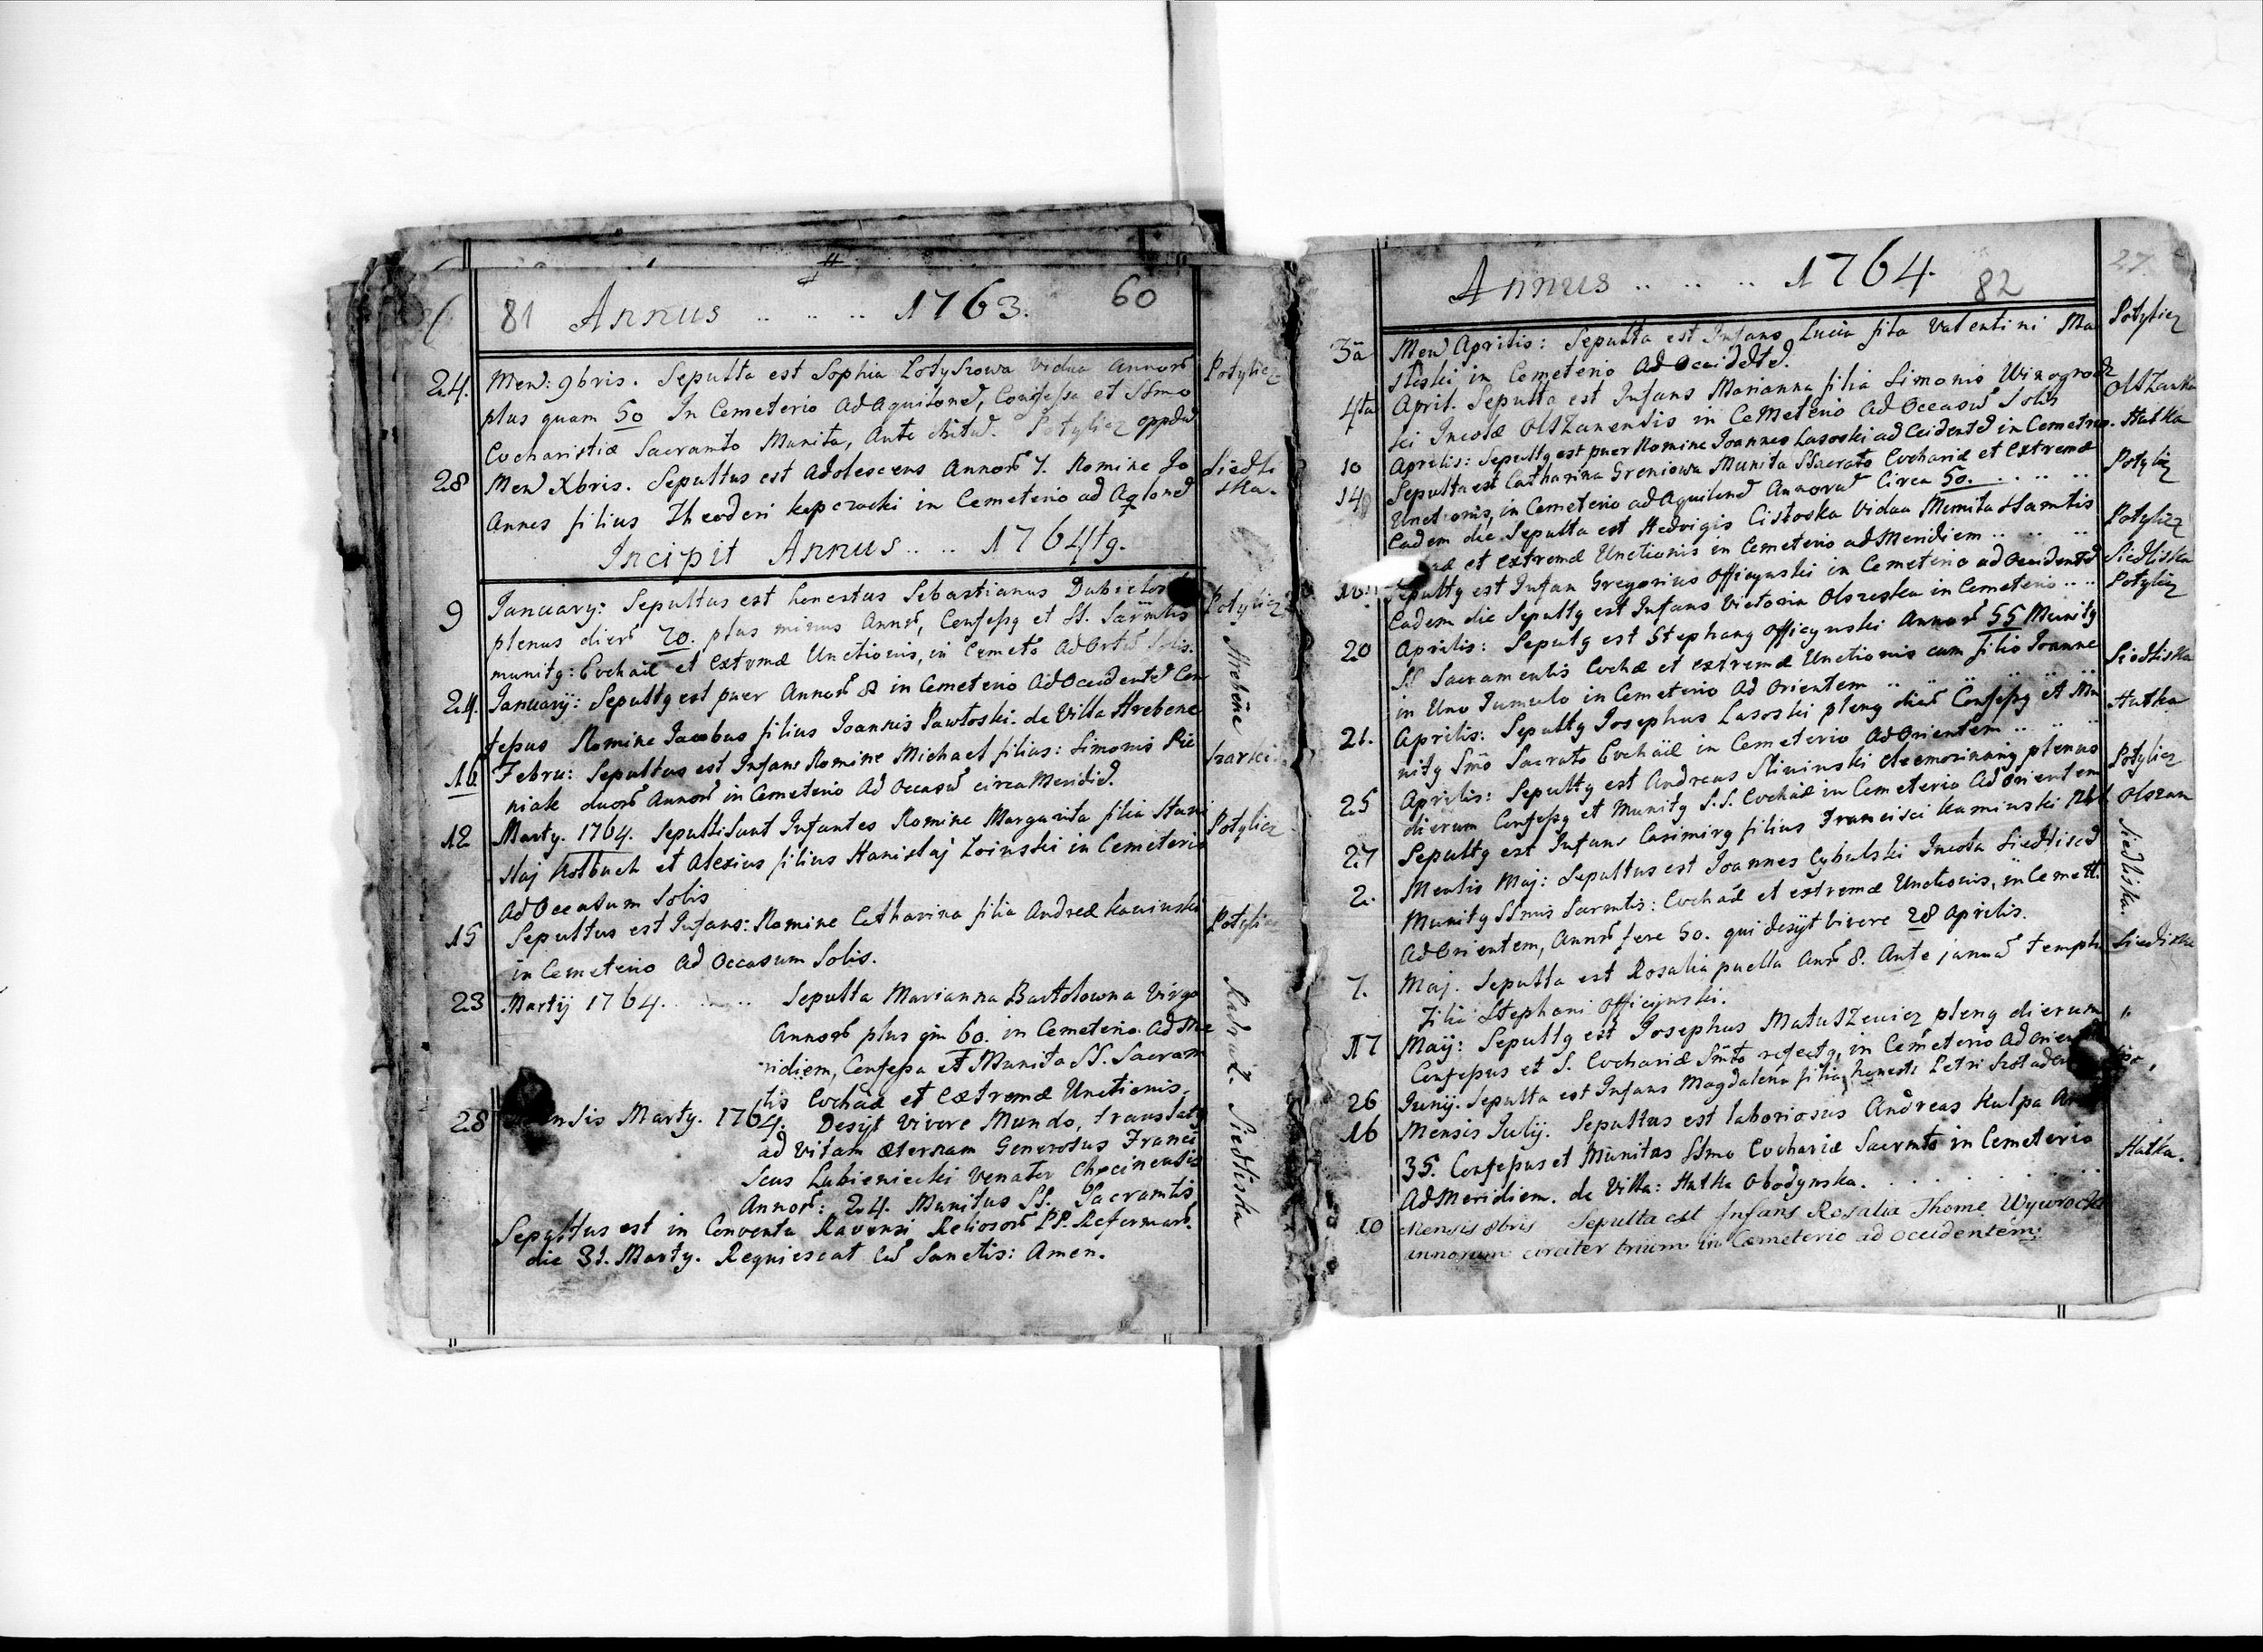 81 Annus .. .. .. 1763. 60
24. Mens: 9bris. Sepulta est Sophia Lotyszowa Vidua Annor Potylicz
plus quam 50 In Cemeterio Ad Aquilone, Confessa et SSmo
Eucharistiæ Sacramto Munita, Ante obitu. Potylicz oppdu
28 Mens Xbris. Sepultus est Adolescens Annor 7. Nomine Jo Siedli
Annes filius Theodori kepczacki in Cemeterio ad Aqlone ska.
Incipit Annus .. .. 1764tg.
9 January: Sepultus est honestus Sebastianus Potylicz
plenus dier 70. plus minus Annor, Confessg et SS. Sacrmtis
munitg: Euchaæ et Extrmæ Unctionis, in Cemeto Ad Ortu Solis.
24. Januarij: Sepultg est puer Annor 8 in Cemeterio Ad Occidente Con
fessus Nomine Jacobus filius Joannis Pawłoski. de Villa Hrebene Hrebene
16 Febru: Sepultus est Infans Nomine Michael filius: Simonis Pie
niak duor Annor in Cemeterio Ad Occasu circa Meridie.
12 Marty. 1764. Sepulti sunt Infantes Nomine Margarita filia Stani Potylicz
slaj Kolbuch et Alexius filius Stanislaj Zoinski in Cemeterio
Ad Occasum Solis
15 Sepultus est Infans: Nomine Catharina filia Andreæ Kacinski Potylicz
in Cemeterio Ad Occasum Solis.
23 Martij 1764. Sepulta Marianna Bartolowna Virgo
Annor plus qm 60. in Cemeterio. Ad Me
ridiem, Confessa et Munita SS. Sacram
tis Euchaæ et Extremæ Unctionis,
28 Mensis Marty. 1764. Desyt Vivere Mundo, translatg
ad Vitam æternam Generosus Franci
scus Lubieniecki Venator Chocinensis
Annor: 24. Munitus SS. Sacramtis Siedliska
Sepultus est in Conventu Ravensi Reliosor PP. Reformar.
die 31. Marty. Requiescat Cu Sanctis: Amen.
Annus .. .. .. 1764. 82 27.
3ā Mens Aprilis: Sepulta est Infans Lucia fila Valentini Ma Potylicz
stiski in Cemeterio Ad Occidete.
4ta April. Sepulta est Infans Marianna filia Simonis Winogrodz Olszanka
ki Incolæ Olszanensis in Cemeterio Ad Occasu Solis
10 Aprilis: Sepultg est puer Nomine Joannes Lasoski ad Ccidente in Cemetrio. Hutka
14 Sepulta est Catharina Greniowa Munita SSacrato Euchariæ et Extremæ Potylicz
Unctionis, in Cemeterio ad Aquilone Annoru Circa 50. . .. ..
Eadem die Sepulta est Hedvigis Cisłoska Vidua Munita SSamtis Potylicz
et extremæ Unctionis in Cemeterio ad Meridiem .. .. ..
16 Sepultg est Infan Gregorius Officynski in Cemeterio ad Occidente Siedliska
Eadem die Sepultg est Infans Victoria Olszeska in Cemeterio .. .. Potylicz
20 Aprilis: Sepultg est Stephang Officynski Annor 55 Munitg
SS Sacramentis Euchæ et extremæ Unctionis cum filio Joanne Siedliska
in Uno Tumulo in Cemeterio Ad Orientem .. .. ..
21. Aprilis: Sepultg Josephus Lasoski pleng dier Confessg et Mu Hutka
nitg Smo Sacrato Euchaæ in Cemeterio Ad Orientem ..
25 Aprilis: Sepultg est Andreas Sliwinski elæmosinang plenus Potylicz
dierum Confessg et Munitg S.S. Euchaæ in Cemeterio Ad Orientem
27 Sepultg est Infans Casimirg filius Francisci Kaminski Olszan
2. Mensis Maj: Sepultus est Joannes Cybulski Incola Siedlisce Siedliska.
Munitg SSmis Sacrmtis: Euchaæ et extremæ Unctionis, in Cemett.
Ad Orientem, Annor fere 50. qui desijt vivere 28 Aprilis.
7. Maj. Sepulta est Rosalia puella Anr 8. Ante janua templi Siedliska
Filia Stephani Officijnski.
17 Maij: Sepultg est Josephus Matuszewicz pleng dierum "
Confessus et S. Euchariæ Smto refectg, in Cemeterio Ad Orien
26 Junij. Sepulta est Infans Magdalena filia honesti Petri
16 Mensis Julij. Sepultus est laboriosus Andreas Kulpa An
35. Confessus et Munitus SSmo Euchariæ Sacrmto in Cemeterio Hutka.
Ad Meridiem. de Villa: Hutka Obodynska.
10 Mensis 8bris Sepulta est Infans Rosalia Thomæ Wywrocki
annorum circiter trium in Cæmeterio ad occidentem.